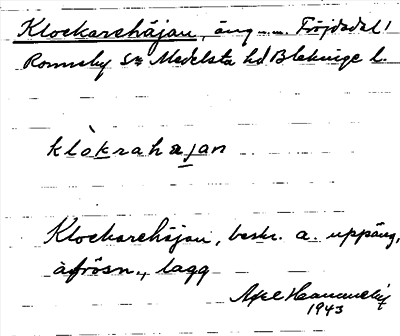 Klockarehäjan, äng ..... Fröjdadal 1
Ronneby sn Medelsta hd Blekinge l.
klòkrahajan
Klockarehäjan, beskr. a. uppäng,
lagg
Axel
1943